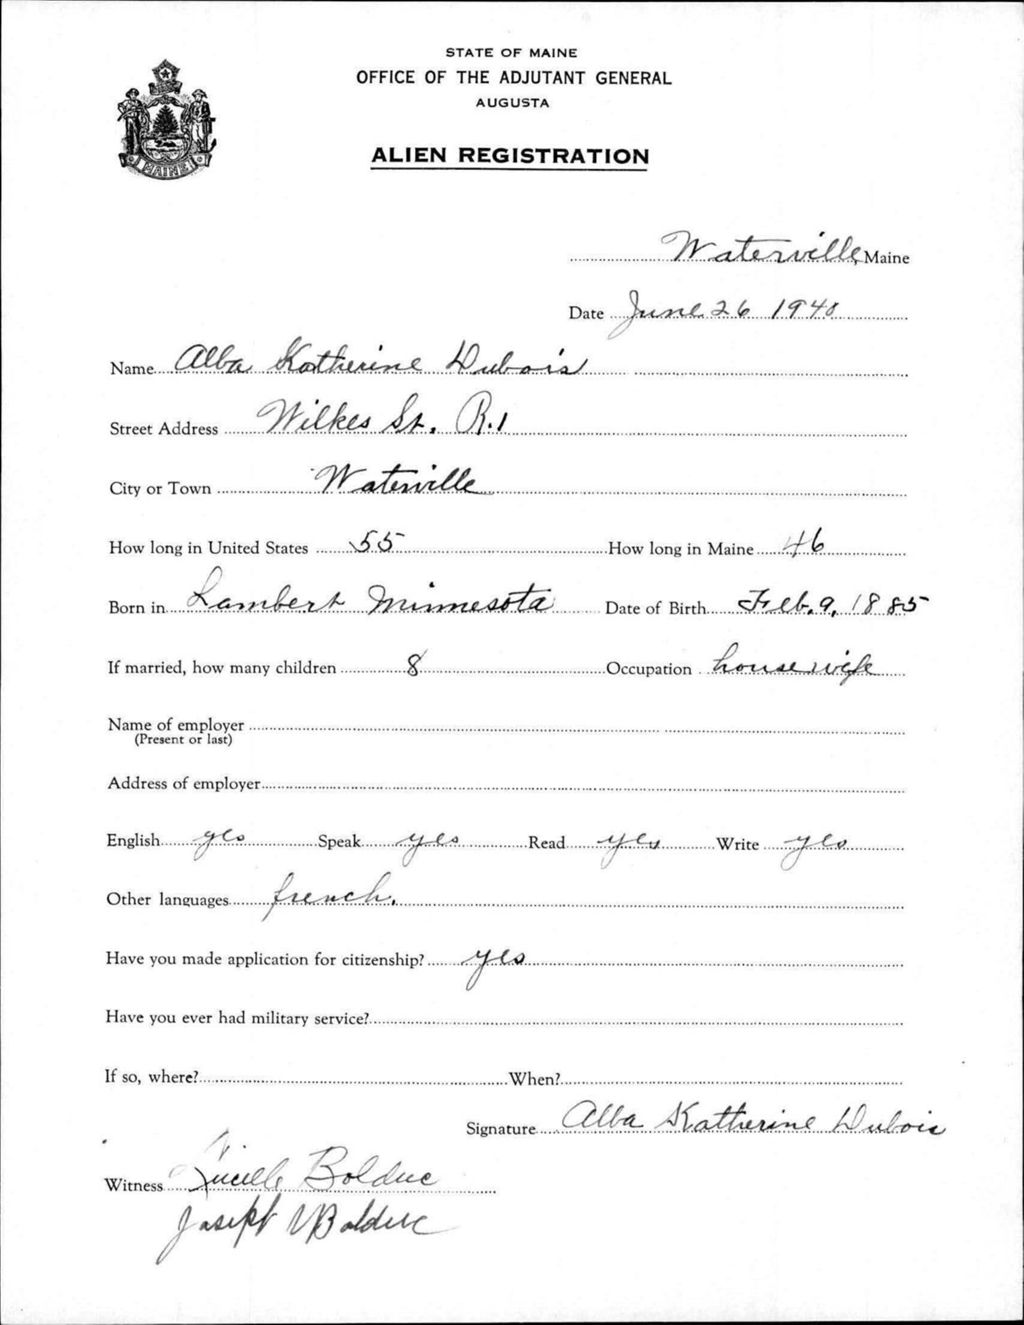 STATE OF MAINE
OFFICE OF THE ADJUTANT GENERAL
AUGUSTA
ALIEN REGISTRATION
MAINE
Waterville, Maine
Date June 26 1940
Name Alba Katherine Dubois
Street Address Wilkes St. R.1
City or Town Waterville
How long in United States 55 How long in Maine 46
Born in Lambert Minnesota Date of Birth Feb. 9, 1885
If married, how many children 8 Occupation housewife
Name of employer
(Present or last)
Address of employer
English yes Speak yes Read yes Write yes
Other languages french.
Have you made application for citizenship? yes
Have you ever had military service?
If so, where? When?
Signature Alba Katherine Dubois
Witness Lucille Bolduc
Joseph Bolduc